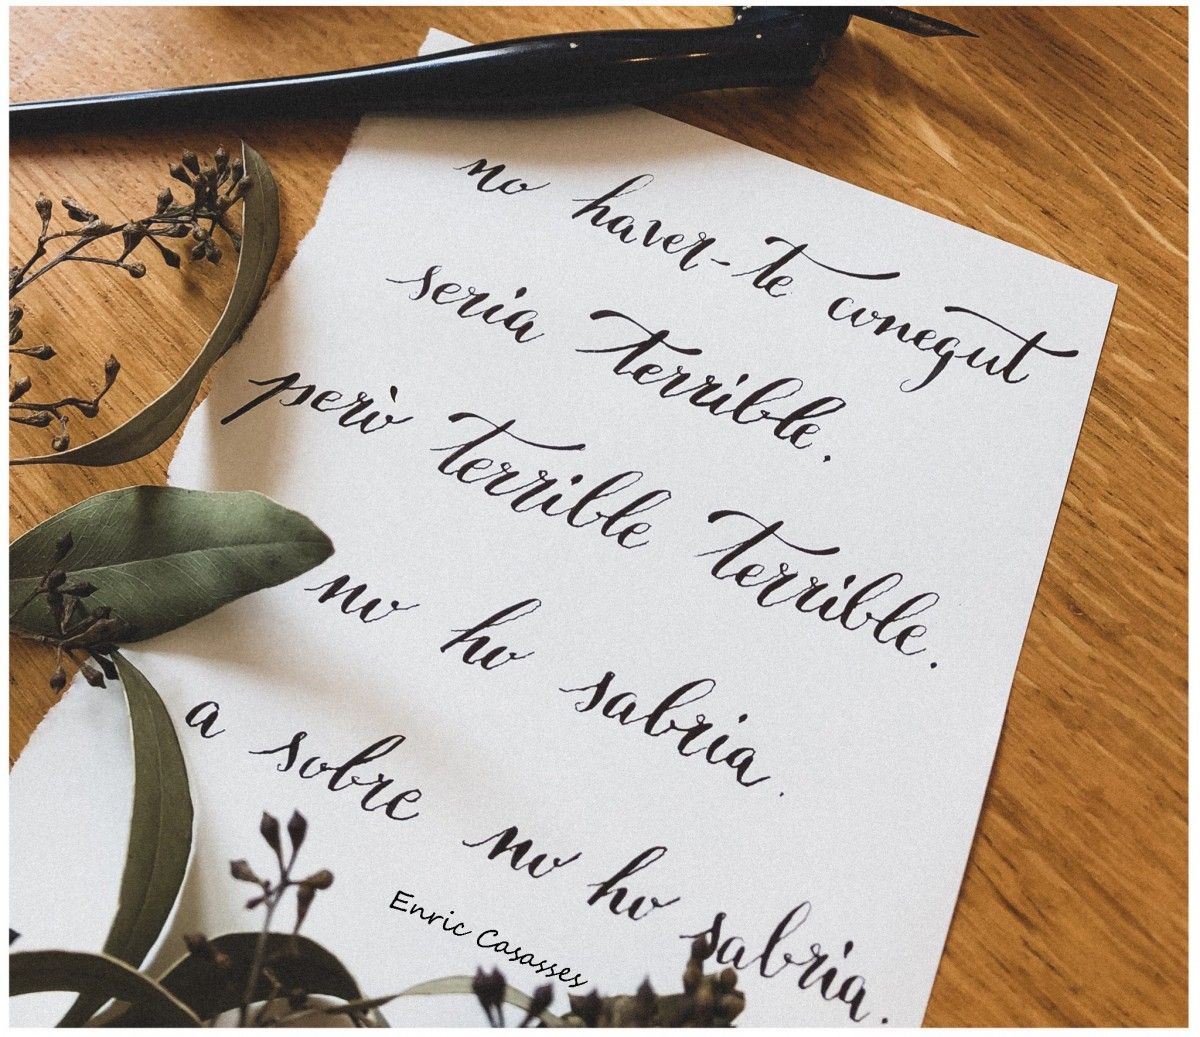 no haver-te conegut
seria terrible.
però terrible terrible.
no ho sabria.
a sobre no ho sabria.
Enric Casasses